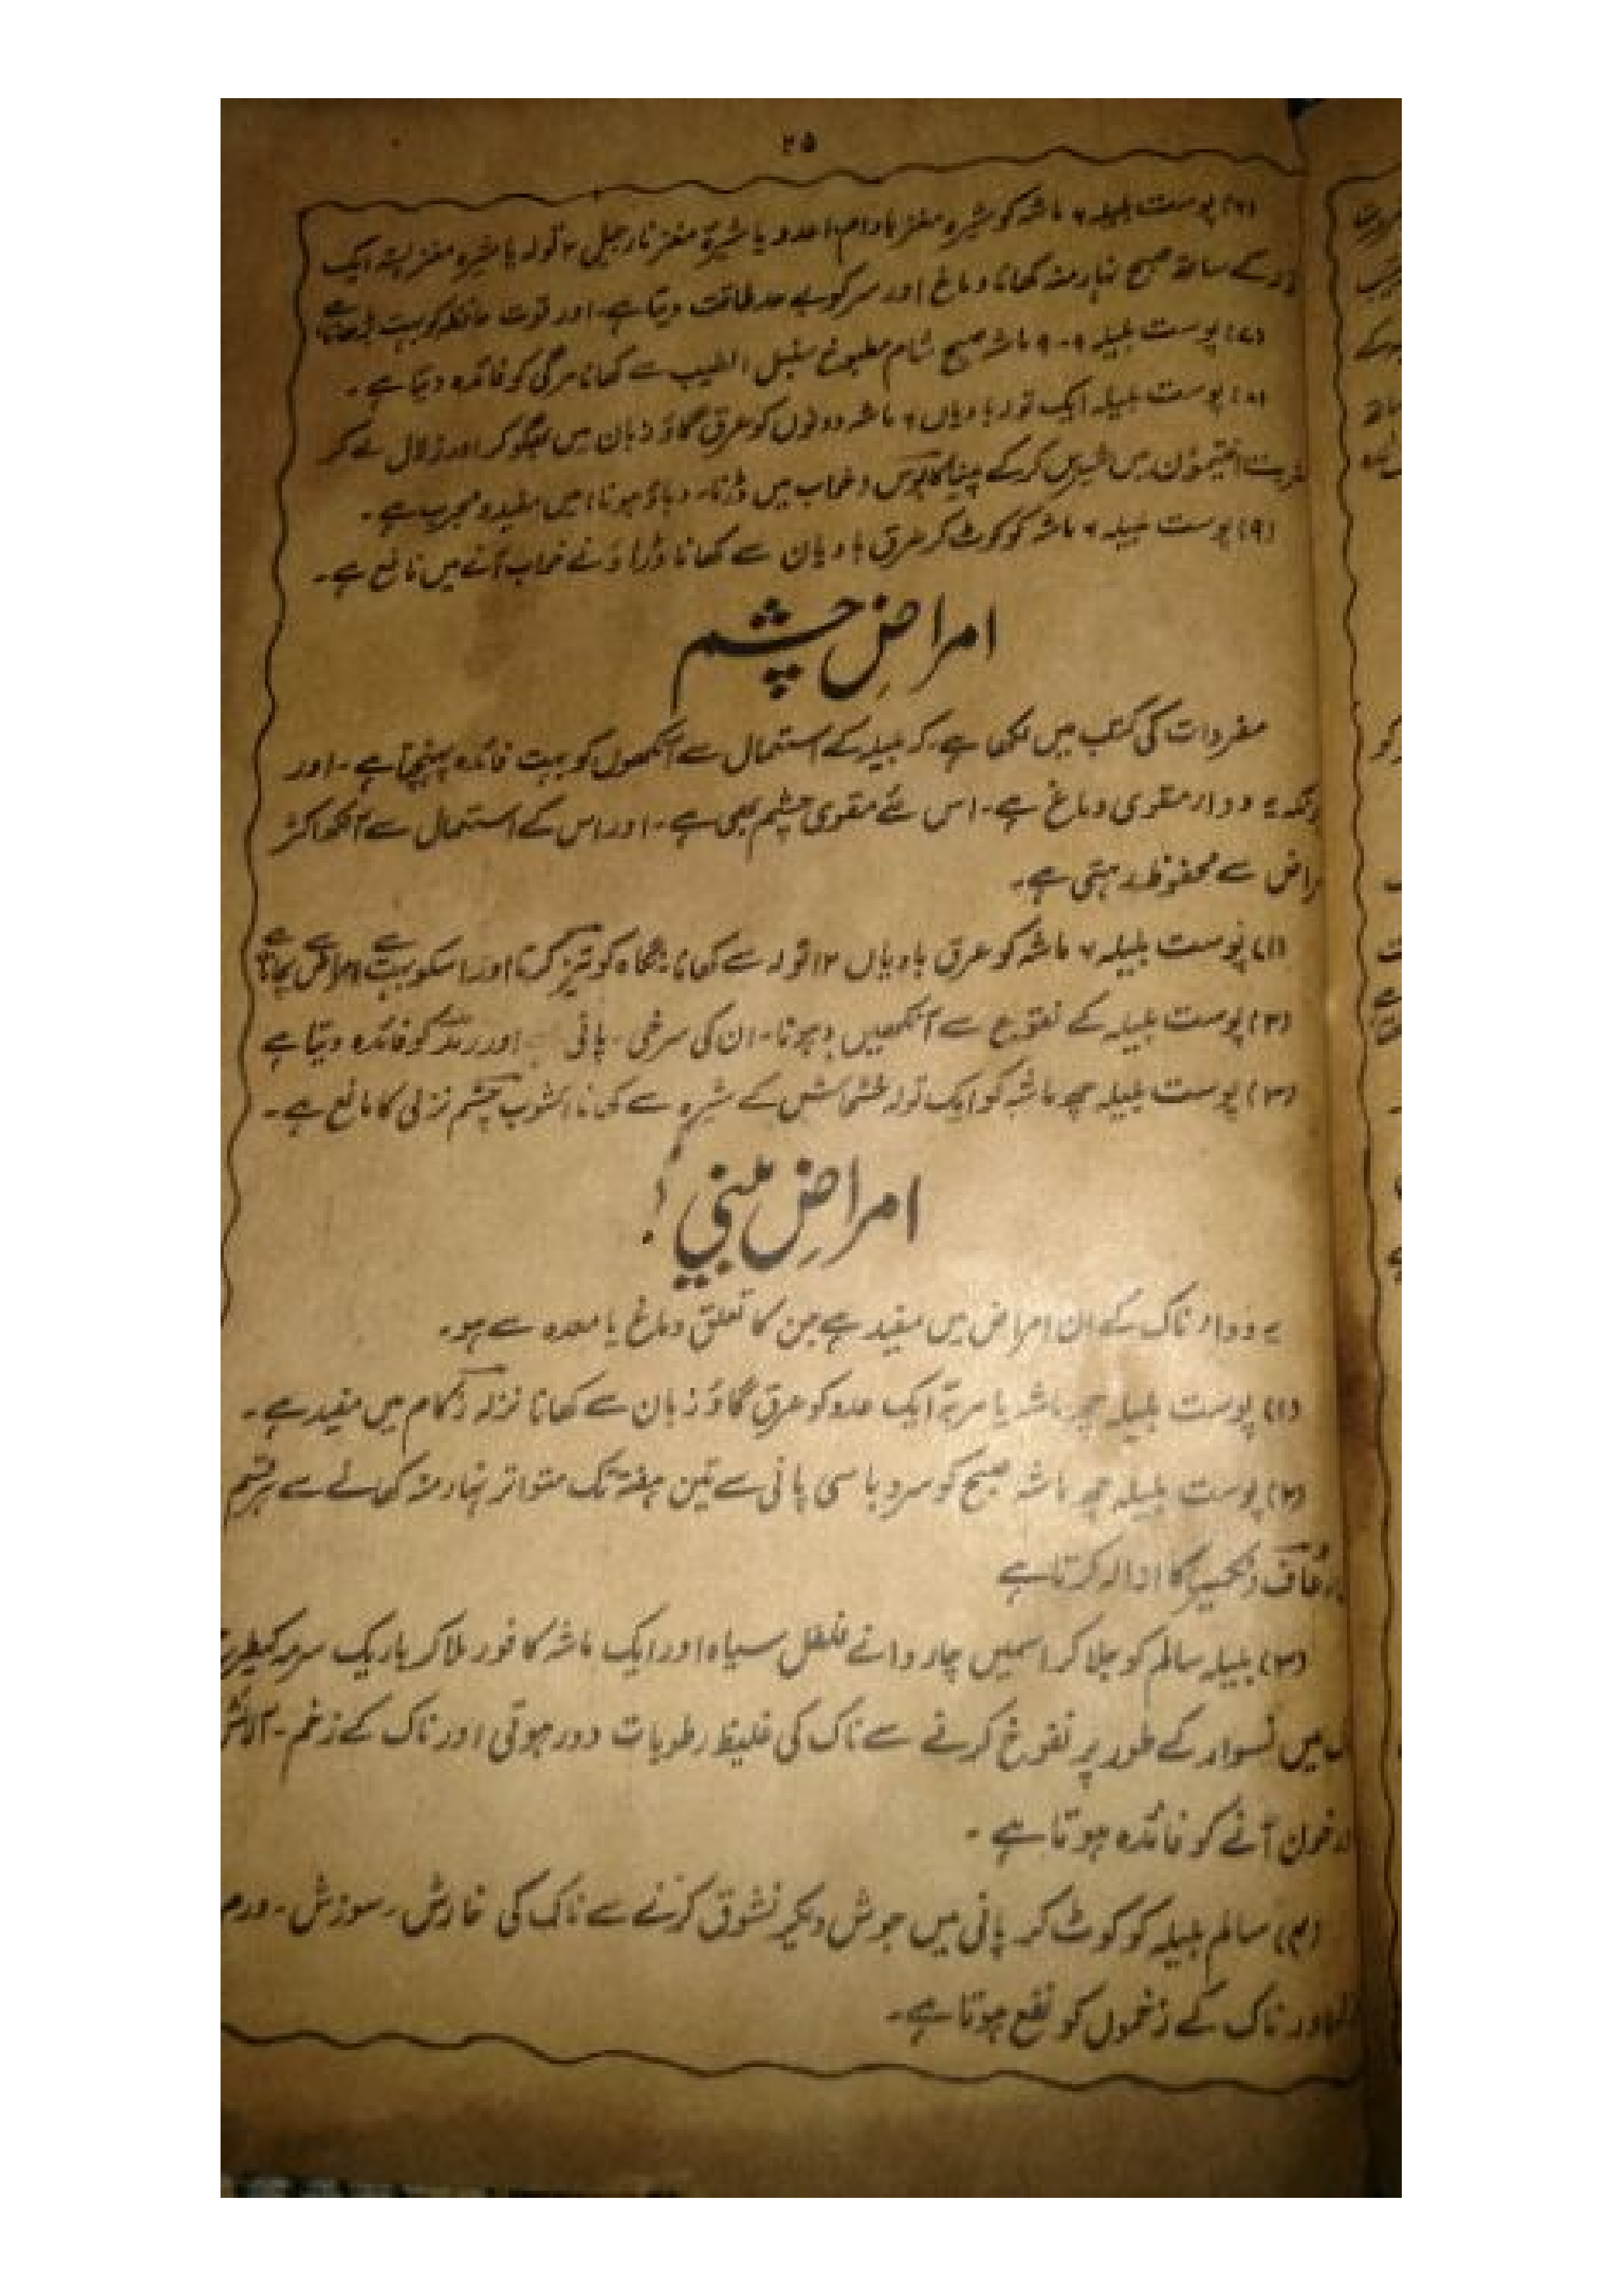 ۲۵
(۶) پوست ہلیلہ ۶ ماشہ کو شیرہ مغز بادام اعدد یا شیرۂ مغز نارجیل ۲ تولہ یا شیرہ مغز پستہ ایک
کے ساتھ صبح نہار منہ کھانا دماغ اور سر کو بے حد طاقت دیتا ہے۔ اور قوت حافظہ کو بہت بڑھاتا ہے
(۷) پوست ہلیلہ ۹-۹ ماشہ صبح شام مطبوخ سنبل الطیب سے کھانا مرگی کو فائدہ دیتا ہے۔
(۸) پوست ہلیلہ ایک تولہ بادیاں ۶ ماشہ دونوں کو عرق گاؤ زبان میں بھگو کر اور زلال لے کر
افتیمون میں شیریں کرکے پینا کابوس (خواب میں ڈرنا۔ دباؤ ہونا) میں مفید و مجرب ہے۔
(۹) پوست ہلیلہ ۶ ماشہ کو کوٹ کر عرق بادیان سے کھانا ڈراؤنے خواب آنے میں نافع ہے۔
امراضِ چشم
مفردات کی کتب میں لکھا ہے۔ کہ ہلیلہ کے استعمال سے آنکھوں کو بہت فائدہ پہنچتا ہے۔ اور
یہ دواء مقوی دماغ ہے۔ اس لئے مقوی چشم بھی ہے۔ اور اس کے استعمال سے آنکھ اکثر
راض سے محفوظ رہتی ہے۔
(۱) پوست ہلیلہ ۶ ماشہ کو عرق بادیاں ۱۲ تولہ سے کھانا نگاہ کو تیز کرتا اور اسکو بہت امراض سے بچاتا ہے
(۲) پوست ہلیلہ کے نقوع سے آنکھیں دھونا۔ ان کی سرخی۔ پانی اور رمد کو فائدہ دیتا ہے
(۳) پوست ہلیلہ چھ ماشہ کو ایک تولہ خشخاش کے شیرہ سے کھانا آشوب چشم نزلی کا مانع ہے۔
امراضِ بینی!
یہ دواء ناک کے ان امراض میں مفید ہے جن کا تعلق دماغ یا معدہ سے ہو۔
(۱) پوست ہلیلہ چھ ماشہ یا مربہ ایک عدد کو عرق گاؤ زبان سے کھانا نزلہ زکام میں مفید ہے۔
(۲) پوست ہلیلہ چھ ماشہ صبح کو سرد باسی پانی سے تین ہفتہ تک متواتر نہار منہ کھانے سے ہر قسم
رعاف (نکسیر) کا ازالہ کرتا ہے
(۳) ہلیلہ سالم کو جلا کر اسمیں چار دانے فلفل سیاہ اور ایک ماشہ کافور ملا کر باریک سرمہ کیطرح
میں نسوار کے طور پر نفوخ کرنے سے ناک کی غلیظ رطوبات دور ہوتی اور ناک کے زخم۔ آلائش
خون آنے کو فائدہ ہوتا ہے۔
(۴) سالم ہلیلہ کو کوٹ کر پانی میں جوش دیکر نشوق کرنے سے ناک کی خارش۔ سوزش۔ ورم
اور ناک کے زخموں کو نفع ہوتا ہے۔